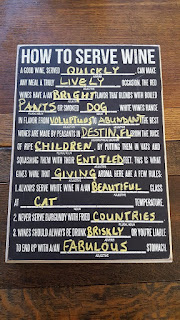 HOW TO SERVE WINE
A GOOD WINE, SERVED QUICKLY CAN MAKE
ANY MEAL A TRULY LIVELY OCCASION. THE RED
WINES HAVE A/AN BRIGHT FLAVOR THAT BLENDS WITH BOILED
PANTS OR SMOKED DOG. WHITE WINES RANGE
IN FLAVOR FROM VOLUPTUOUS TO ABUNDANT. THE BEST
WINES ARE MADE BY PEASANTS IN DESTIN, FL FROM THE JUICE
OF RIPE CHILDREN BY PUTTING THEM IN VATS AND
SQUASHING THEM WITH THEIR ENTITLED FEET. THIS IS WHAT
GIVES WINE THAT GIVING AROMA. HERE ARE A FEW RULES:
1. ALWAYS SERVE WHITE WINE IN A/AN BEAUTIFUL GLASS
ADJECTIVE
AT CAT TEMPERATURE.
2. NEVER SERVE BURGUNDY WITH FRIED COUNTRIES
3. WINES SHOULD ALWAYS BE DRUNK BRISKLY OR YOU'RE LIABLE
TO END UP WITH A/AN FABULOUS STOMACH.
ADJECTIVE